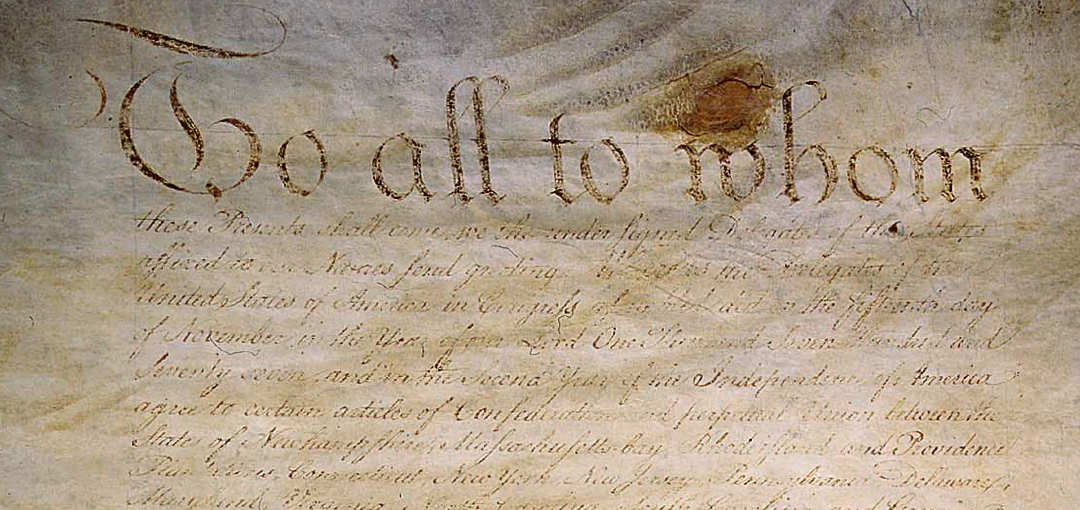 To all to whom
these Presents shall come, we the undersigned Delegates of the States
affixed to our Names send greeting. Whereas the Delegates of the
United States of America in Congress assembled did on the fifteenth day
of November in the Year of our Lord One Thousand Seven Hundred and
Seventy seven, and in the Second Year of the Independence of America
agree to certain articles of Confederation and perpetual Union between the
States of Newhampshire, Massachusetts-bay, Rhodeisland and Providence
Plantations, Connecticut, New York, New Jersey, Pennsylvania, Delaware,
Maryland, Virginia, North-Carolina, South-Carolina and